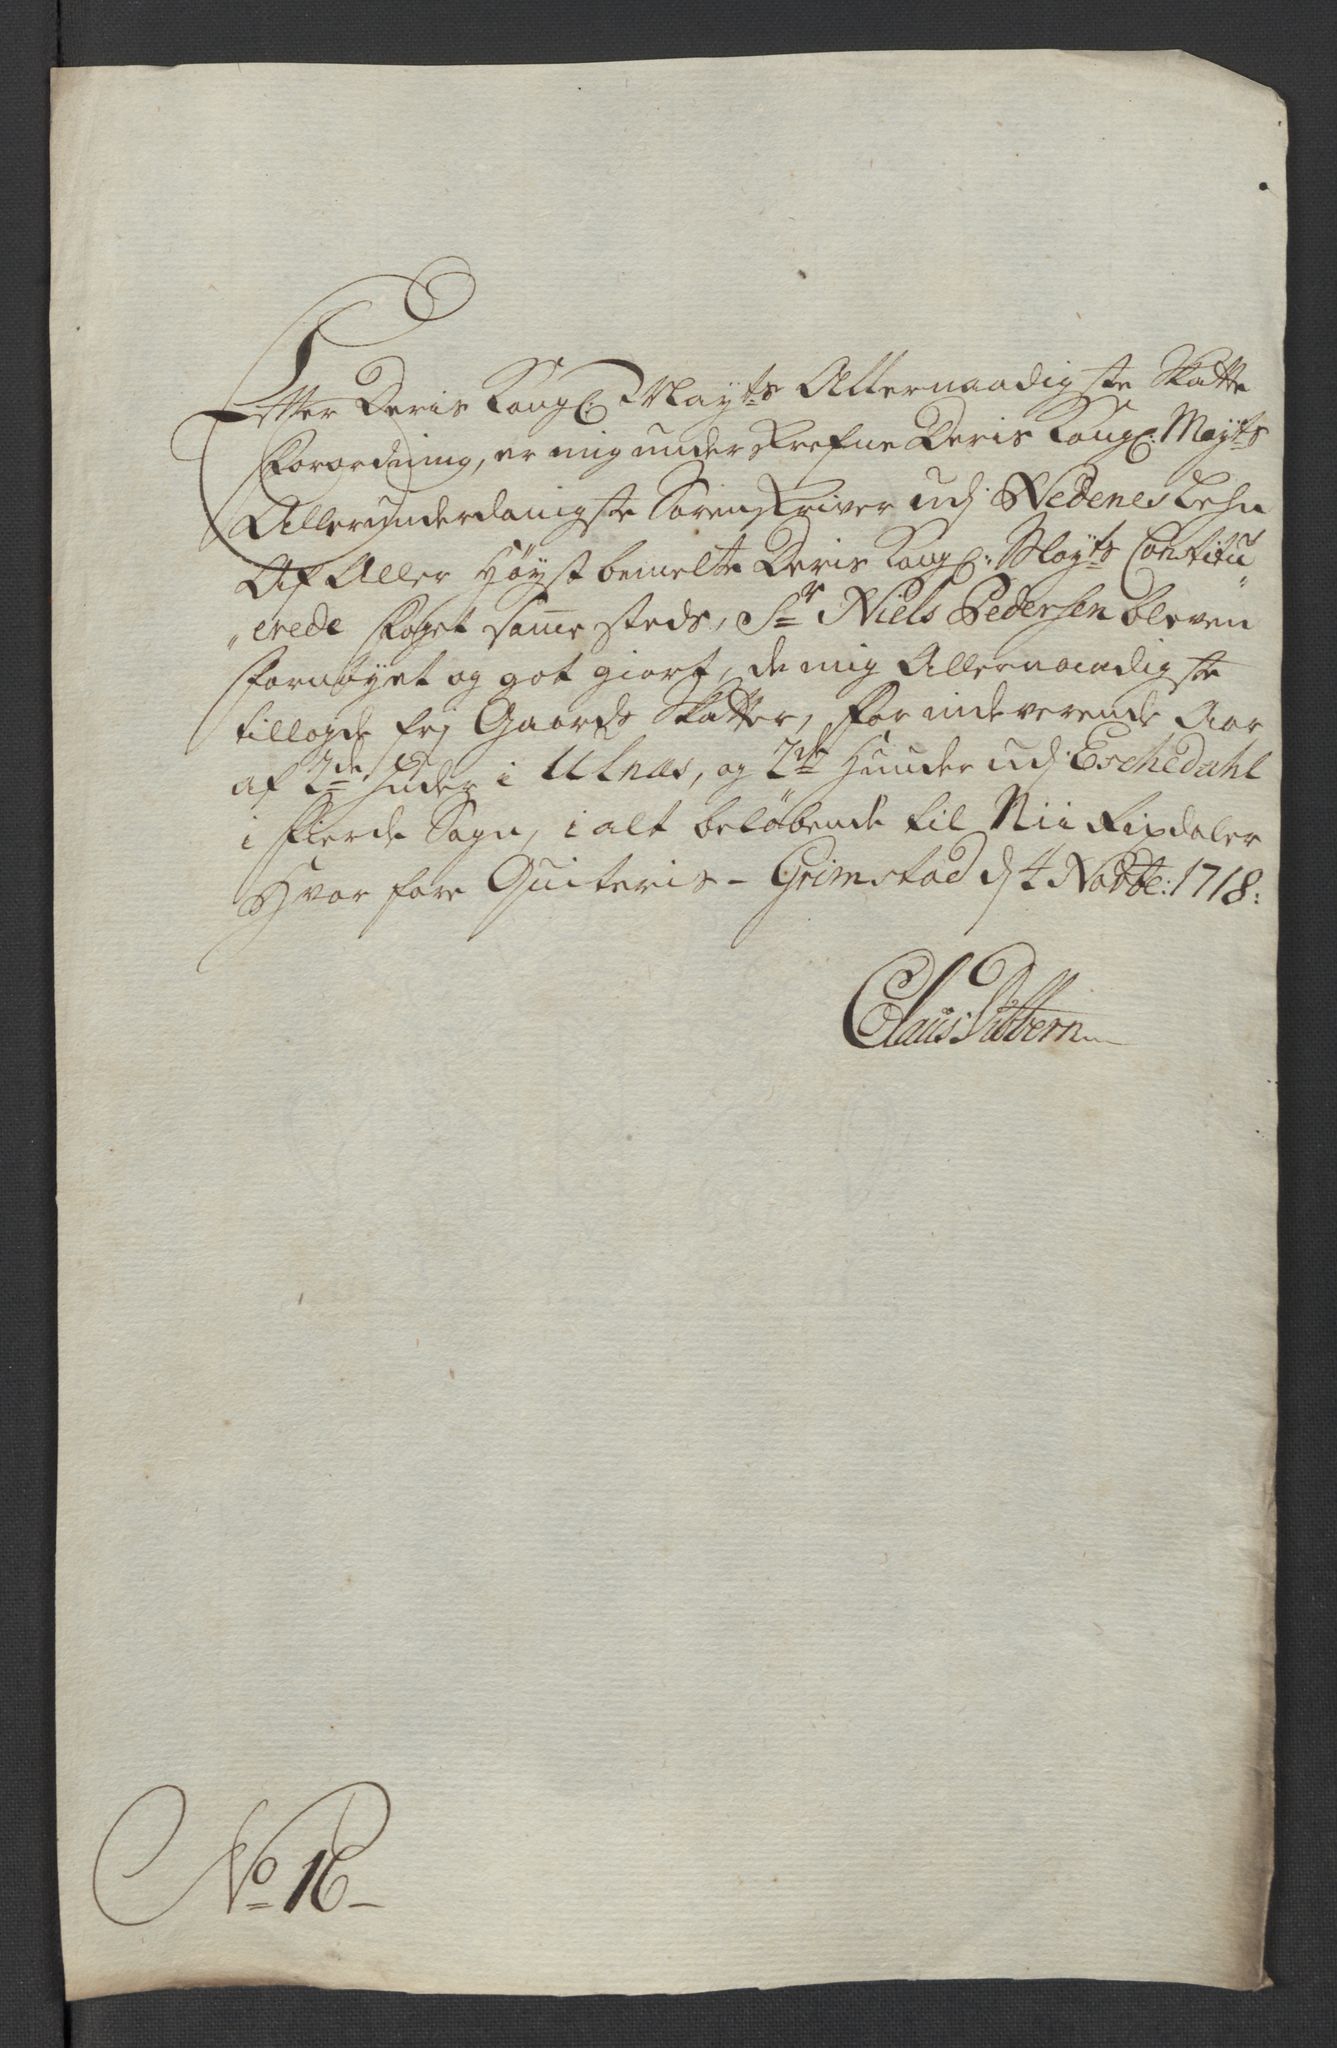 Efter Deris Kongl: Mayts Allernaadigste Skatte
Forordning, er mig underskrefne Deris Kongl: Mayts
Allerunderdanigste Sorenskriver udj Nedenes Lehn
Af Aller Høyst bemelte Deris Kongl: Mayts Constitu„
„erede Foget samme steds, Sr Niels Pedersen bleven
fornøyet og got giort, de mig Allernaadigste
tillagde frj Gaards Skatter, for indeverende Aar
af 2de Huder i Ulnæs, og 2de Huuder udj Eschedahl
i Fierde Sogn, i alt beløbende til Nii Rixdaler
Hvor fore Quiteris - Grimstad d 4 Novbr: 1718:
Claus Sibbern
No 16